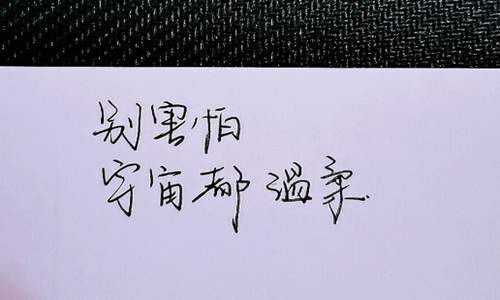 别害怕
宇宙都温柔